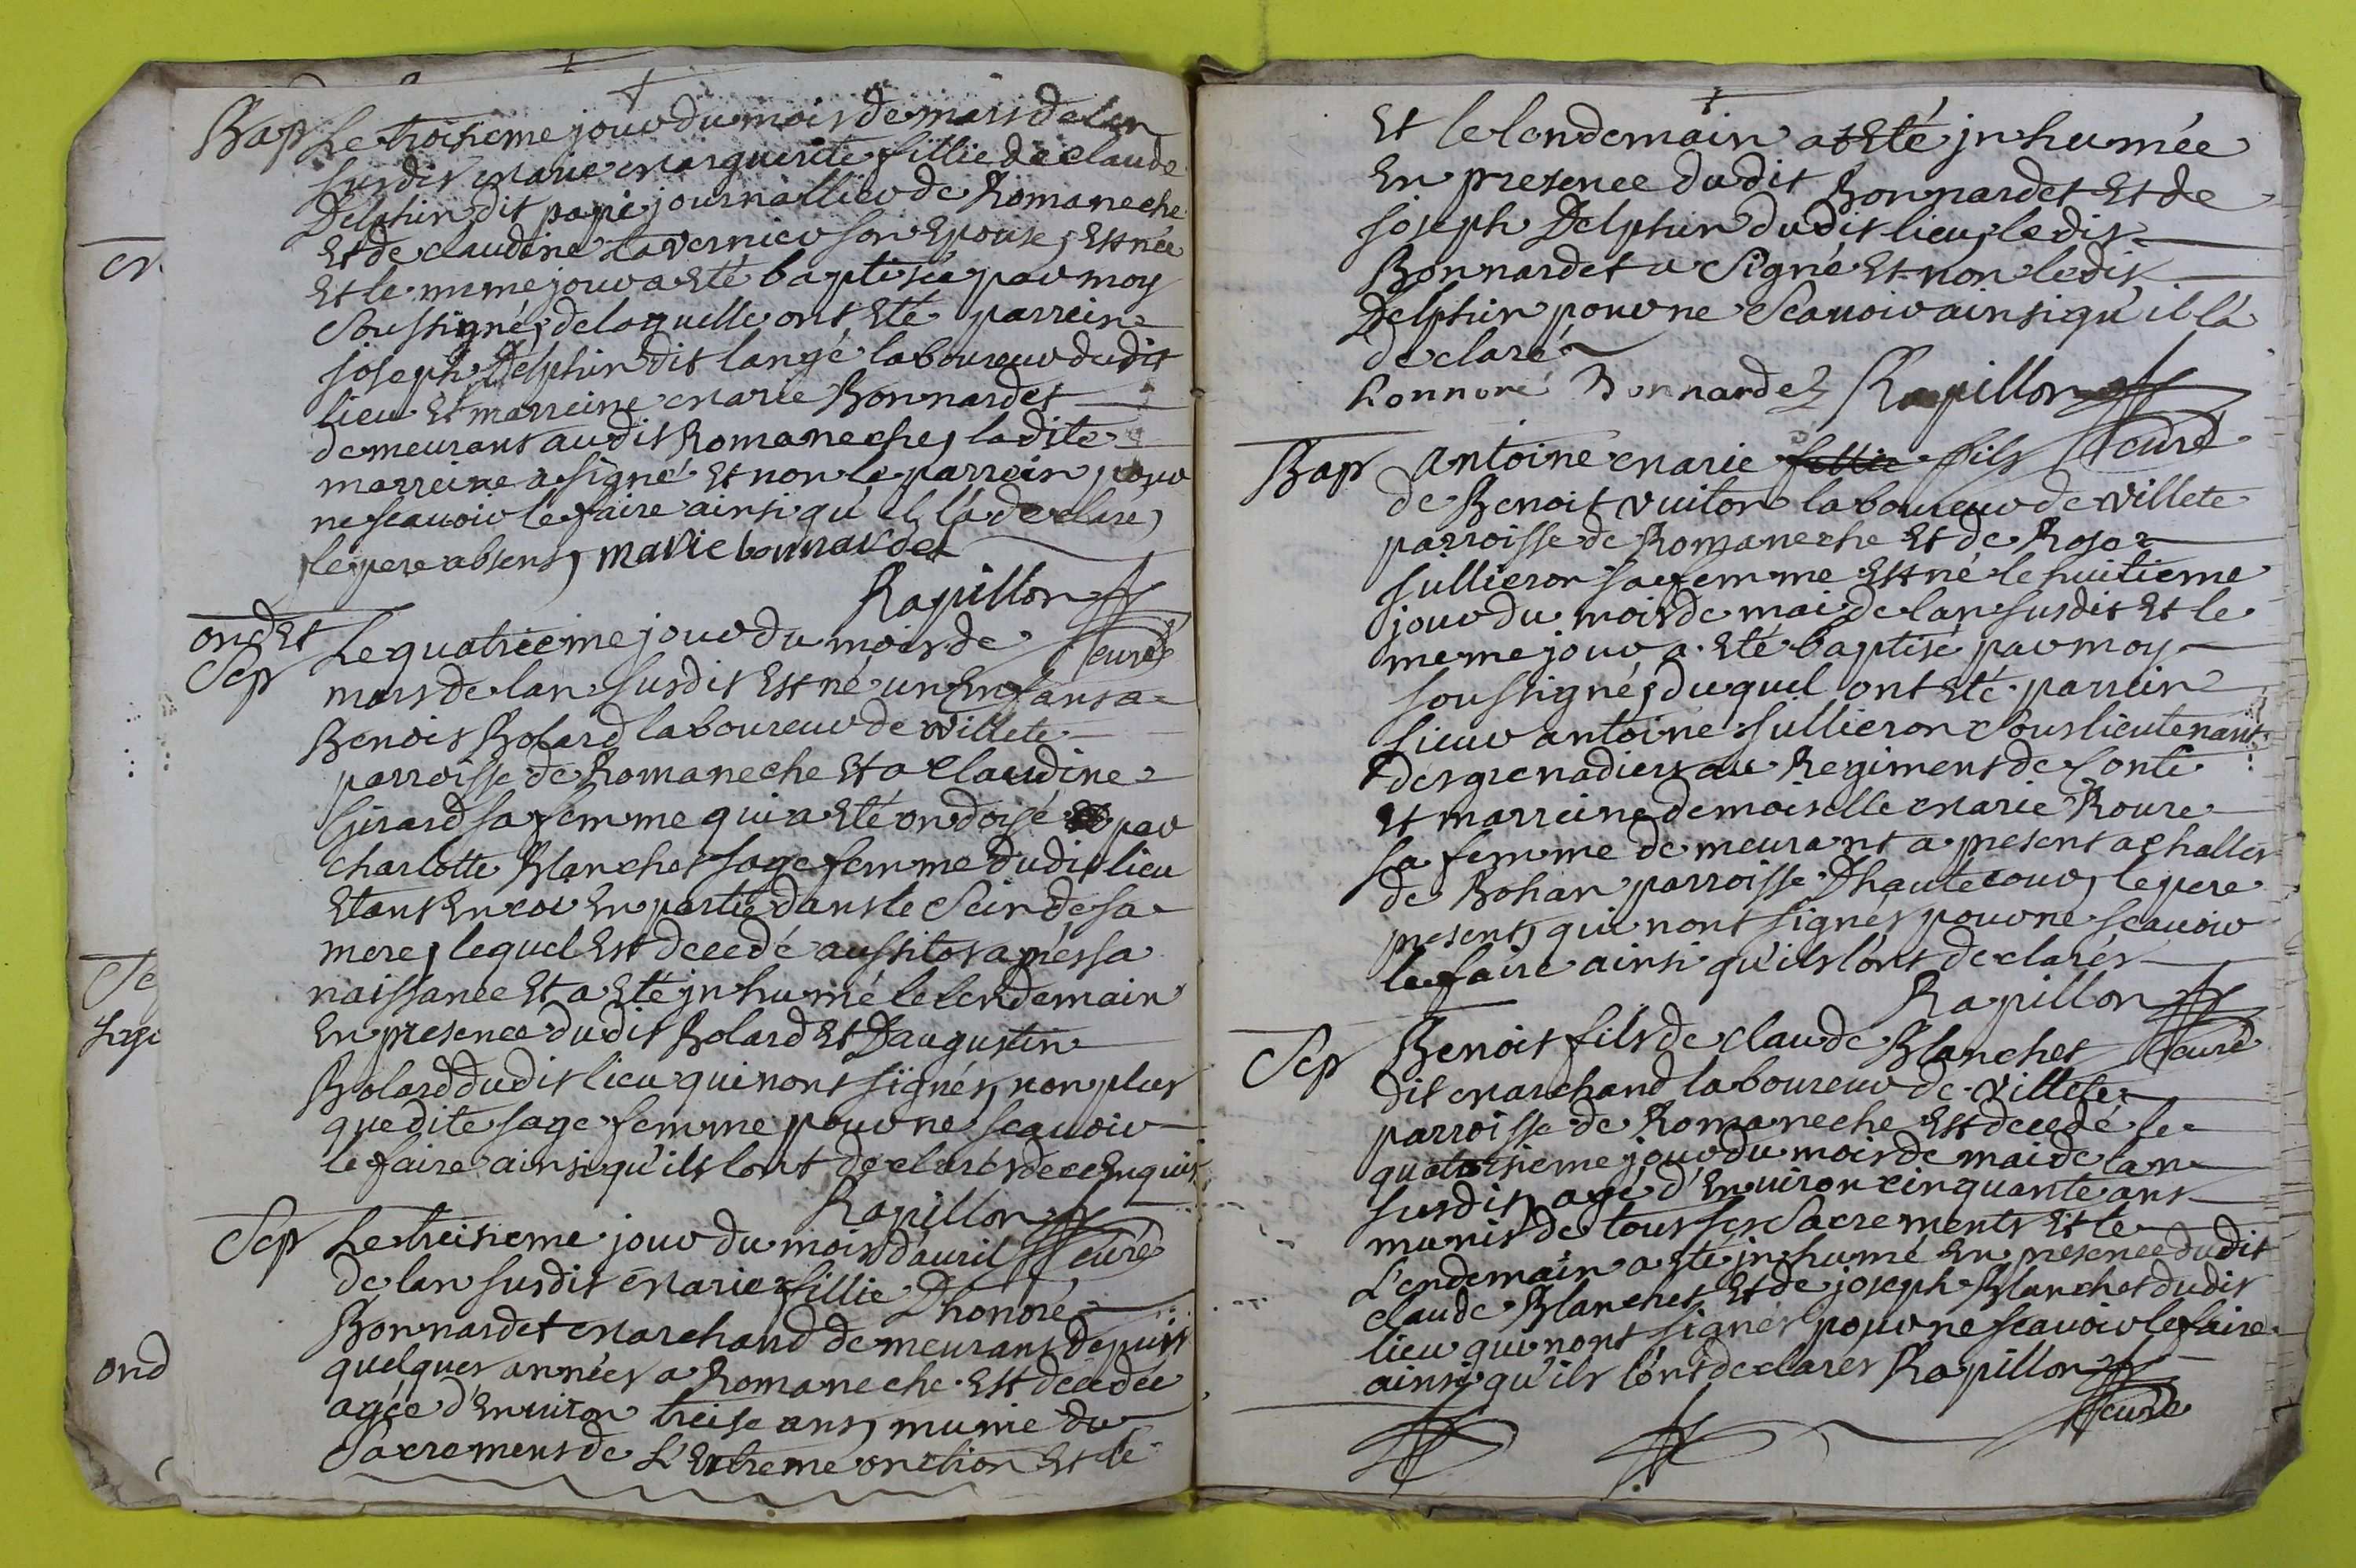 Bap Le troisieme jour du mois de mars de lan
susdit marie marguerite fillie de claude
Delphin dit papi journallier de Romaneche
Et de claudine Lavernier son Epouse, Est née
Et le meme jour a Eté baptisée par moy
soussigné, de laquelle ont Eté parrein
joseph Delphin dit langé laboureur dudit
lieu Et marreine marie Bonnardet
demeurans audit Romaneche, ladite
marreine a signé Et non le parrein pour
ne scauoir le faire ainsi qu'il l'a declaré,
le pere absent, marie bonnardet
Rapillon
curé
ond Et
Sep
Le quatrieme jour du mois de
mars de lan susdit Est né un Enfans a
Benoit Bolard laboureur de villete
parroisse de Romaneche Et a Claudine
Girard sa femme qui a Eté ondoié par
charlotte Blanchet sage femme dudit lieu
Etant Encor En partie dans le Sein de sa
mere, lequel Est decedé aussitot apres sa
naissance Et a Eté jnhumé le lendemain
En presence dudit Bolard Et D'augustin
Bolard dudit lieu qui nont signés, non plus
que dite sage femme pour ne scauoir
le faire ainsi qu'ils lont declarés de ce Enquis
Rapillon
curé
Sep Le treisieme jour du mois d'auril
de lan susdit marie fillie D'honoré
Bonnardet marchand demeurant depuis
quelques années a Romaneche Est decedée
agée d'Enuiron treise ans, munie du
Sacrement de L'Extreme onction Et le
Et le lendemain a Eté jnhumée
En presence dudit Bonnardet Et de
joseph Delphin dudit lieu, ledit
Bonnardet a Signé Et non ledit
Delphin pour ne Scauoir ainsi qu'il l'a
declaré
honnoré Bonnardet Rapillon
curé
Bap antoine marie fillie fils
de Benoit vuiton laboureur de villete
parroisse de Romaneche Et de Rose
sullieron sa femme Est né le huitieme
jour du mois de mai de lan susdit Et le
meme jour a Eté baptisé par moy
soussigné, duquel ont Eté parrein
sieur antoine sullieron Sous lieutenant
des grenadiers au Regiment de Conti
Et marreine demoiselle marie Roure
sa femme demeurant a present a challes
de Bohan parroisse D'hautecour, le pere
present, qui nont signés pour ne scauoir
le faire ainsi qu'ils l'ont declarés
Rapillon
curé
Sep Benoit fils de claude Blanchet
dit marchand laboureur de villete
parroisse de Romaneche Est decedé le
quatorsieme jour du mois de mai de lan
susdit, agé d'Enuiron cinquante ans
munis de tous ses Sacrements Et le
L'endemain a Eté jnhumé En presence dudit
claude Blanchet Et de joseph Blanchet dudit
lieu qui nont signés pour ne scauoir le faire
ainsi qu'ils l'ont declarés Rapillon
curé